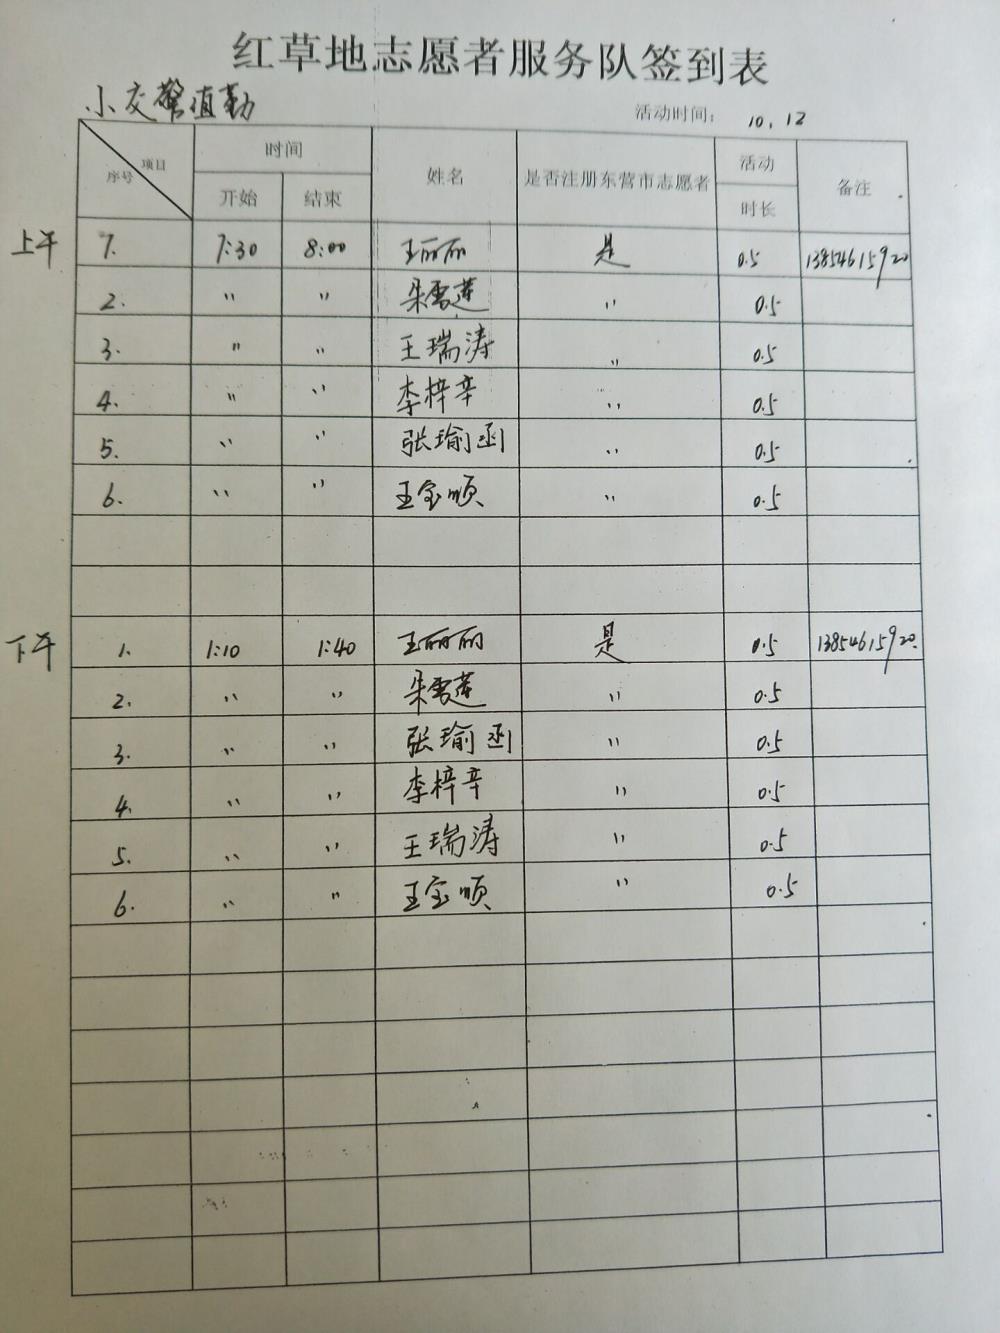 红草地志愿者服务队签到表
小交警值勤
活动时间: 10.12
项目 序号 时间 开始 结束 姓名 是否注册东营市志愿者 活动时长 备注
上午 1. 7:30 8:00 王丽丽 是 0.5 13854615920
2. " " 朱雪莲 " 0.5
3. " " 王瑞涛 " 0.5
4. " " 李梓辛 " 0.5
5. " " 张瑜函 " 0.5
6. " " 王宝顺 " 0.5
下午 1. 1:10 1:40 王丽丽 是 0.5 13854615920.
2. " " 朱雪莲 " 0.5
3. " " 张瑜函 " 0.5
4. " " 李梓辛 " 0.5
5. " " 王瑞涛 " 0.5
6. " " 王宝顺 " 0.5